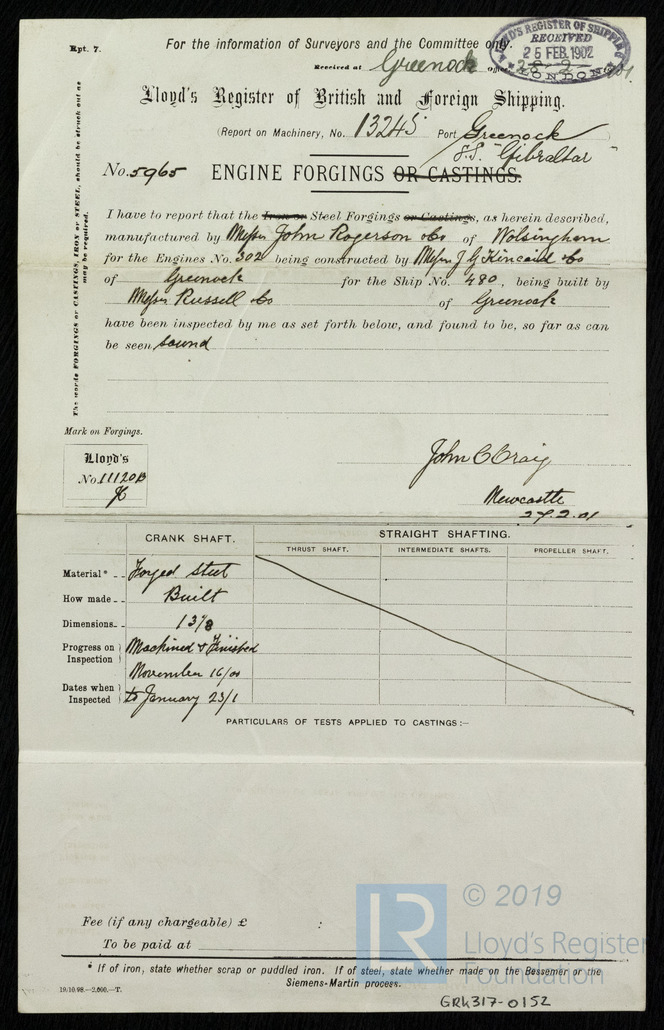 Rpt. 7.
For the information of Surveyors and the Committee only.
LLOYD'S REGISTER OF SHIPPING
RECEIVED
25 FEB. 1902
LONDON
Received at Greenock office 28. 2. 1901.
Lloyd's Register of British and Foreign Shipping.
(Report on Machinery, No. 13245 Port Greenock)
S.S. "Gibraltar"
No. 5965 ENGINE FORGINGS OR CASTINGS.
The words FORGINGS or CASTINGS, IRON or STEEL, should be struck out as
may be required.
I have to report that the Iron or Steel Forgings or Castings, as herein described,
manufactured by Messrs John Rogerson & Co of Wolsingham
for the Engines No. 302 being constructed by Messrs J G Kincaid & Co
of Greenock for the Ship No. 480, being built by
Messrs Russell & Co of Greenock
have been inspected by me as set forth below, and found to be, so far as can
be seen sound
Mark on Forgings.
Lloyd's
No. 11120B
John C Craig
Newcastle
27.2.01
CRANK SHAFT. STRAIGHT SHAFTING.
THRUST SHAFT. INTERMEDIATE SHAFTS. PROPELLER SHAFT.
Material* Forged Steel
How made Built
Dimensions 13 7/8
Progress on Inspection Machined & Finished
Dates when Inspected November 16/00
to January 23/1
PARTICULARS OF TESTS APPLIED TO CASTINGS:—
Fee (if any chargeable) £ :
To be paid at
* If of iron, state whether scrap or puddled iron. If of steel, state whether made on the Bessemer or the
Siemens-Martin process.
19.10.98.—2,600.—T.
GRK317-0152
LR
© 2019
Lloyd's Register
Foundation